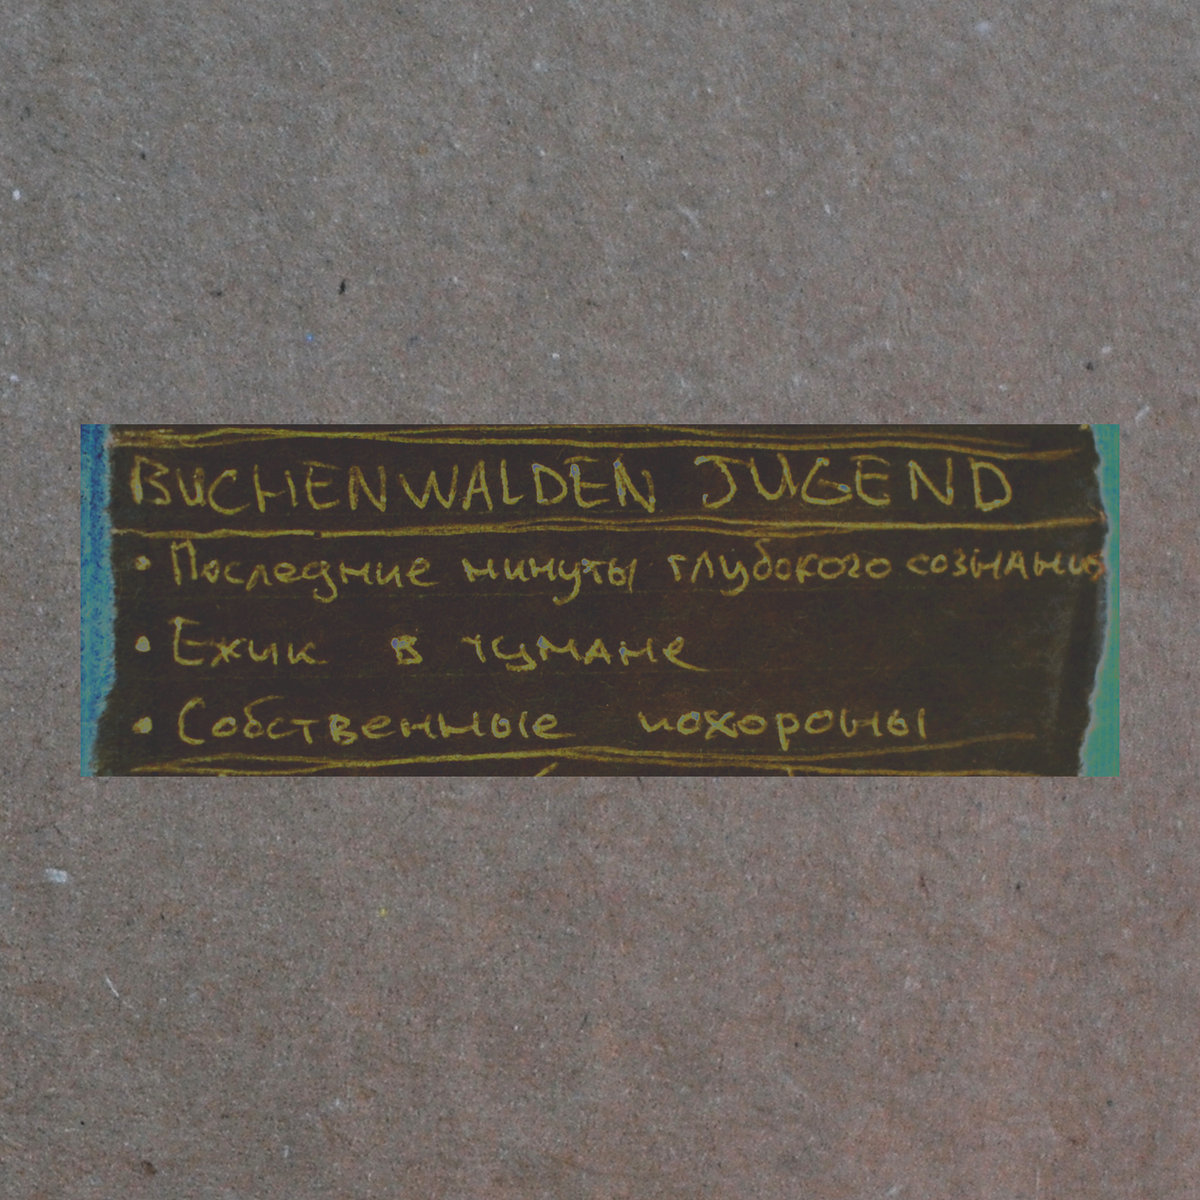 BUCHENWALDEN JUGEND
• Последние минуты глубокого сознания
• Ежик в тумане
• Собственные похороны